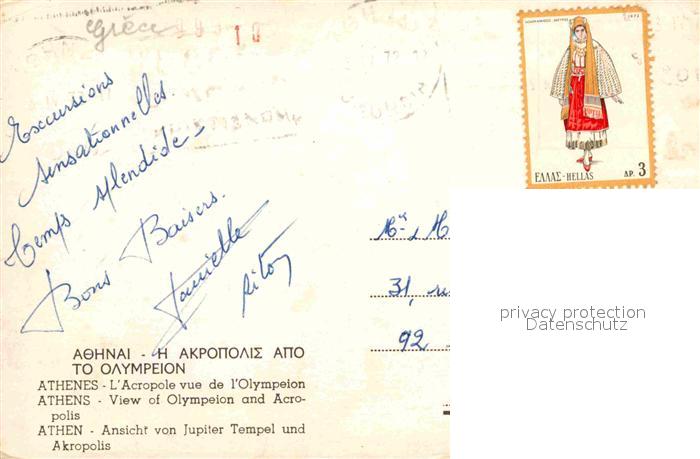 Grèce
Excursions
sensationnelles.
temps splendide -
Bons Baisers.
Danielle
1972
ΕΛΛΑΣ-HELLAS ΔΡ. 3
31, 
92
privacy protection
Datenschutz
ΑΘΗΝΑΙ - Η ΑΚΡΟΠΟΛΙΣ ΑΠΟ
ΤΟ ΟΛΥΜΡΕΙΟΝ
ATHENES - L'Acropole vue de l'Olympeion
ATHENS - View of Olympeion and Acro-
polis
ATHEN - Ansicht von Jupiter Tempel und
Akropolis